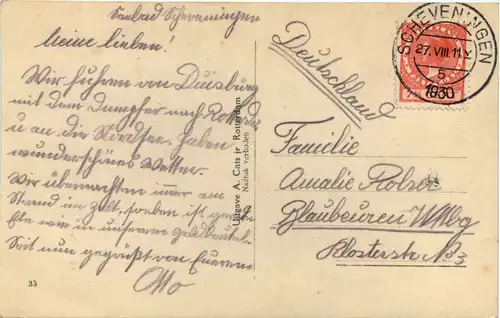 Seebad Scheveningen
Meine lieben!
Wir fuhren von Duisburg
mit dem Dampfer nach
u an die Nordsee. Haben
wunderschönes Wetter.
Wir übernachten immer am
Strand im Zelt, soeben ist
Ebbe wie in unserem Geldbeutel.
Seit nun gegrüßt von Euerem
Otto
35
Uitgave A. Cats jr Rotterdam
Nadruk verboden
Deutschland
SCHEVENINGEN
27.VIII.11
5
1930
Familie
Amalie
Blaubeuren Wttbg
Klosterstr. N 3